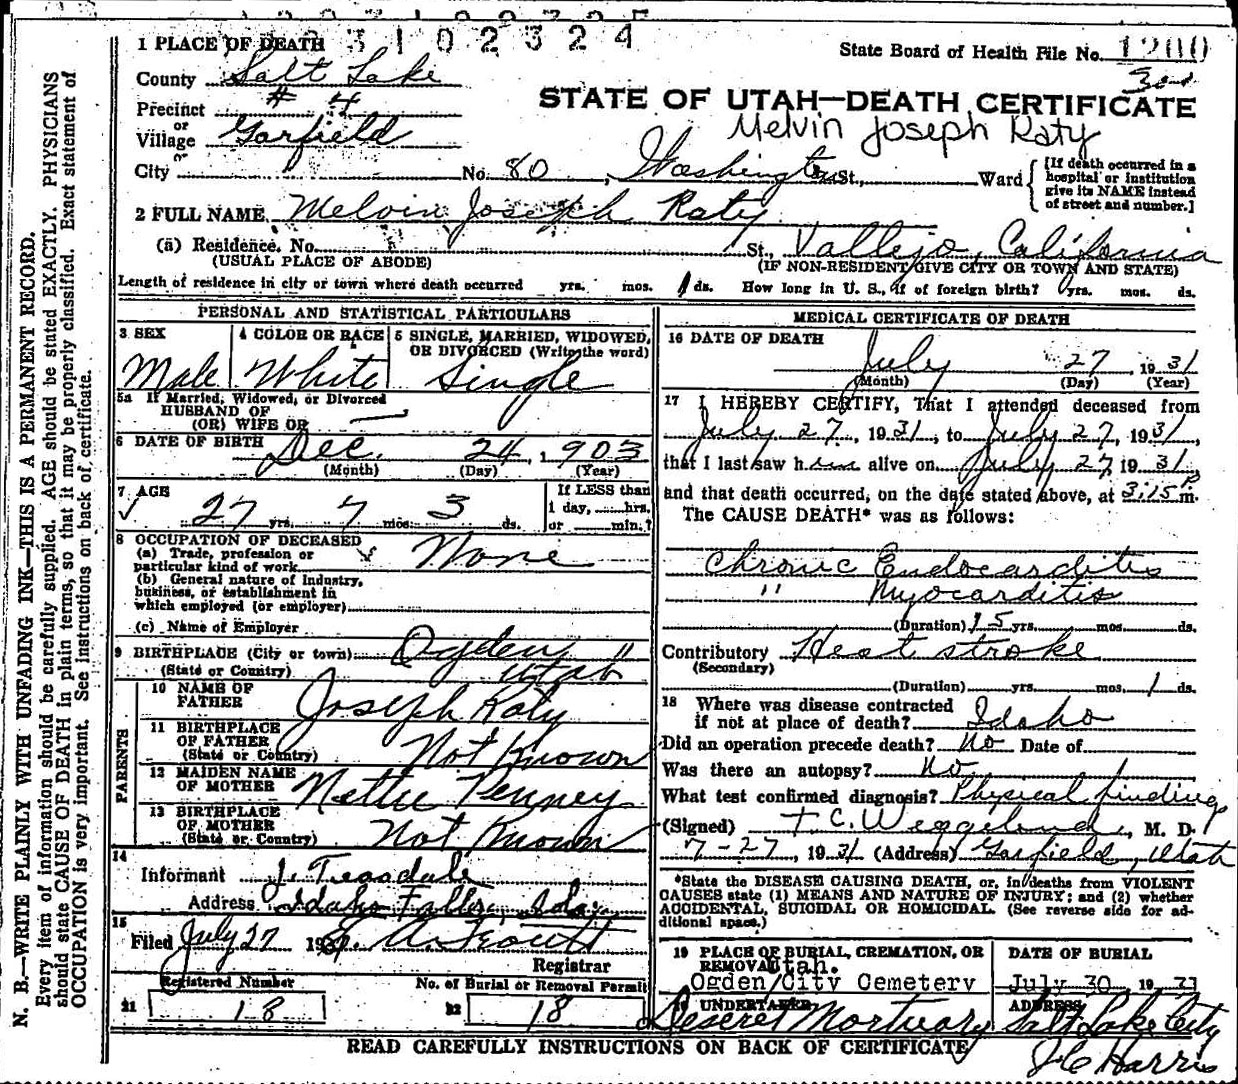 2 3 1 0 2 3 2 4
1 PLACE OF DEATH
State Board of Health File No. 1200
County Salt Lake
Precinct # 4
STATE OF UTAH—DEATH CERTIFICATE
or
Village Garfield
Melvin Joseph Raty
or
City No. 80, Washington St., Ward
[If death occurred in a hospital or institution give its NAME instead of street and number.]
2 FULL NAME Melvin Joseph Raty
(a) Residence. No. St., Vallejo, California
(USUAL PLACE OF ABODE) (IF NON-RESIDENT GIVE CITY OR TOWN AND STATE)
Length of residence in city or town where death occurred yrs. mos. 1 ds. How long in U. S., if of foreign birth? yrs. mos. ds.
PERSONAL AND STATISTICAL PARTICULARS
3 SEX 4 COLOR OR RACE 5 SINGLE, MARRIED, WIDOWED, OR DIVORCED (Write the word)
Male White Single
5a If Married, Widowed, or Divorced
HUSBAND OF
(OR) WIFE OF
6 DATE OF BIRTH Dec. 24, 1903
(Month) (Day) (Year)
7 AGE If LESS than
27 yrs. 7 mos. 3 ds. 1 day, hrs.
or min.?
8 OCCUPATION OF DECEASED
(a) Trade, profession or
particular kind of work None
(b) General nature of industry,
business, or establishment in
which employed (or employer)
(c) Name of Employer
9 BIRTHPLACE (City or town) Ogden,
(State or Country) Utah
PARENTS
10 NAME OF
FATHER Joseph Raty
11 BIRTHPLACE
OF FATHER
(State or Country) Not Known
12 MAIDEN NAME
OF MOTHER Nettie Penney
13 BIRTHPLACE
OF MOTHER
(State or Country) Not Known
14
Informant J. Teasdale
Address Idaho Falls, Ida.
15
Filed July 27 193
Registrar
Registered Number No. of Burial or Removal Permit
21 18 22 18
MEDICAL CERTIFICATE OF DEATH
16 DATE OF DEATH
July 27, 1931
(Month) (Day) (Year)
17 I HEREBY CERTIFY, That I attended deceased from
July 27, 1931, to July 27, 1931,
that I last saw him alive on July 27, 1931,
and that death occurred, on the date stated above, at 3:15 P m.
The CAUSE DEATH* was as follows:
Chronic Endocarditis
" Myocarditis
(Duration) 15 yrs. mos. ds.
Contributory Heat stroke
(Secondary)
(Duration) yrs. mos. 1 ds.
18 Where was disease contracted
if not at place of death? Idaho
Did an operation precede death? No Date of
Was there an autopsy? No
What test confirmed diagnosis? Physical findings
(Signed) T C. Weggeland, M. D.
7-27, 1931 (Address) Garfield, Utah
*State the DISEASE CAUSING DEATH, or, in deaths from VIOLENT
CAUSES state (1) MEANS AND NATURE OF INJURY; and (2) whether
ACCIDENTAL, SUICIDAL OR HOMICIDAL. (See reverse side for ad-
ditional space.)
19 PLACE OF BURIAL, CREMATION, OR DATE OF BURIAL
REMOVAL Utah.
Ogden City Cemetery July 30 19
UNDERTAKER ADDRESS
Deseret Mortuary Salt Lake City
J C Harris
READ CAREFULLY INSTRUCTIONS ON BACK OF CERTIFICATE
N. B.—WRITE PLAINLY WITH UNFADING INK—THIS IS A PERMANENT RECORD.
Every item of information should be carefully supplied. AGE should be stated EXACTLY. PHYSICIANS
should state CAUSE OF DEATH in plain terms, so that it may be properly classified. Exact statement of
OCCUPATION is very important. See instructions on back of certificate.